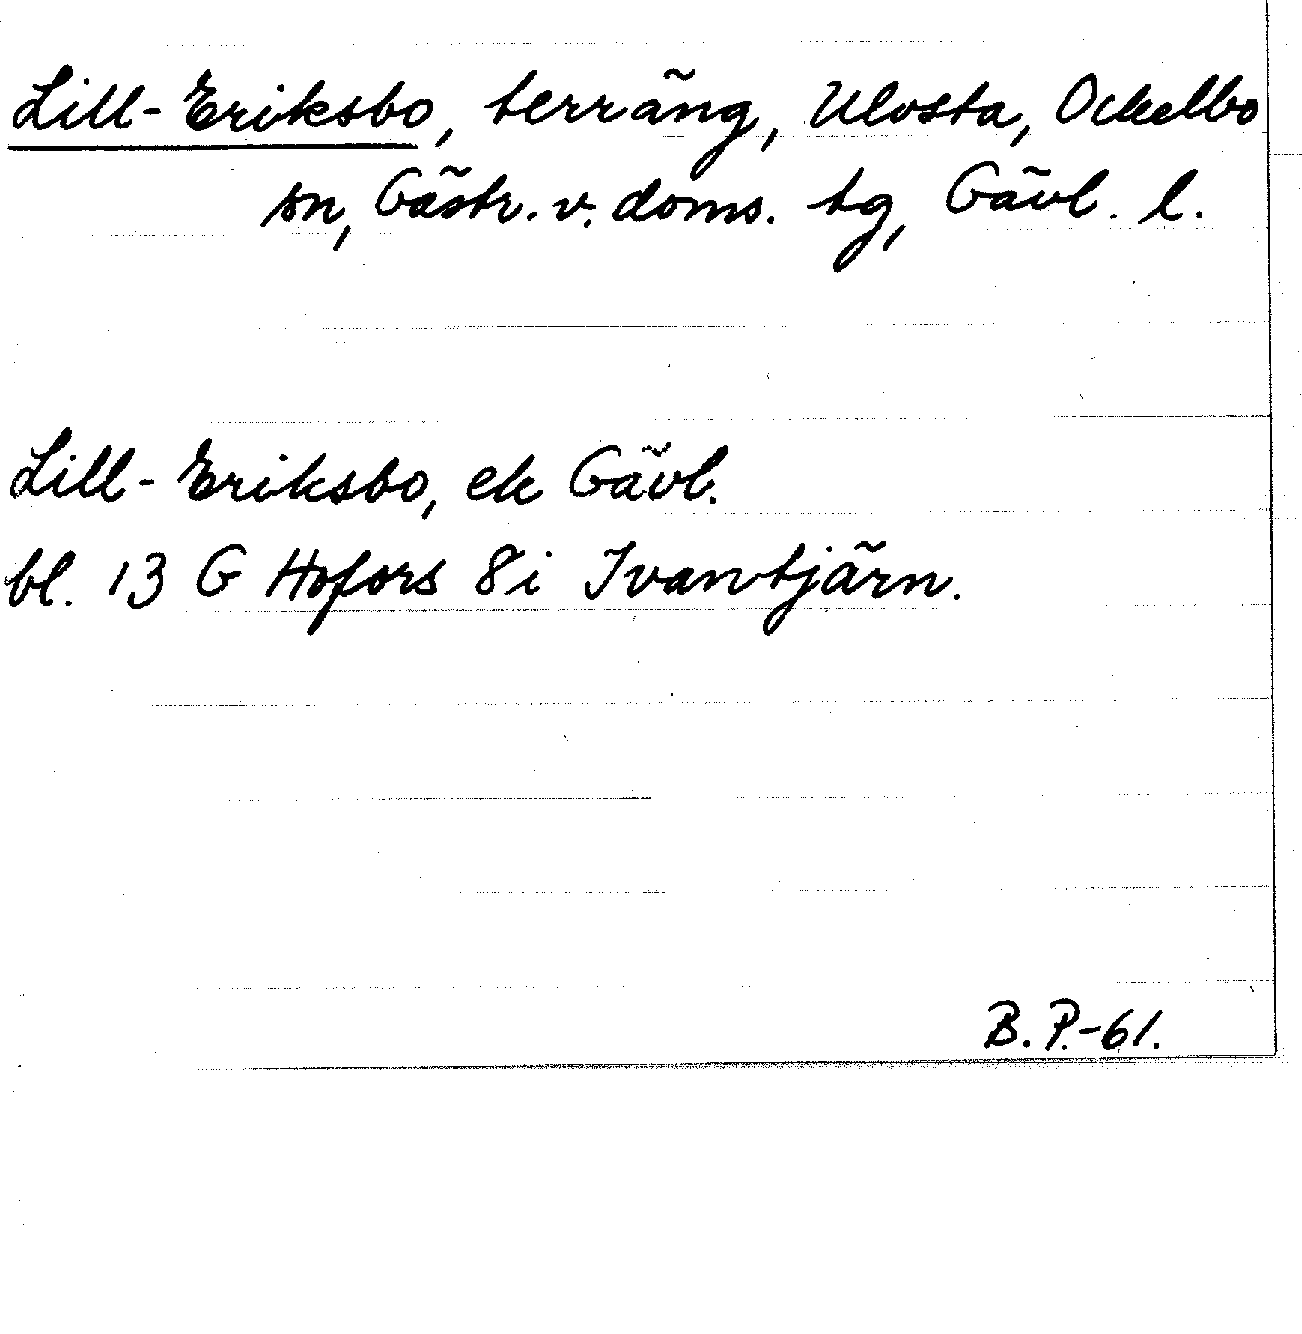 Lill-Eriksbo, terräng, Ulvsta, Ockelbo
sn, Gästr. v. doms. tg, Gävl. l.
Lill-Eriksbo, ek Gävl.
bl. 13 G Hofors 8i Ivantjärn.
B.P.-61.